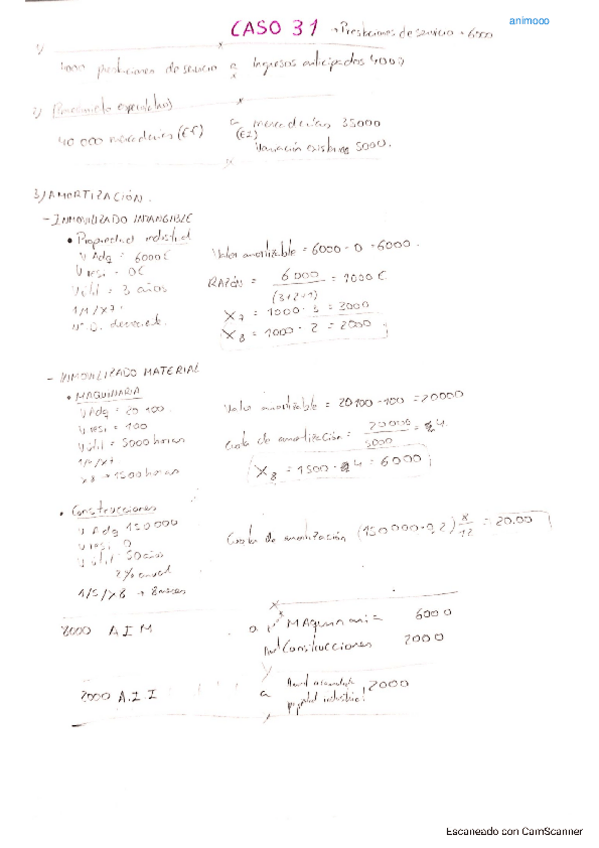 animooo
CASO 31 → Prestaciones de servicio = 6000
1)
4000 prestaciones de servicio a Ingresos anticipados 4000
2) Procedimiento especulativo
40 000 mercaderías (EF) a mercaderías 35000
(EI)
Variación existing 5000.
3) AMORTIZACIÓN.
- INMOVILIZADO INTANGIBLE
• Propiedad industrial
V Adq = 6000€ Valor amortizable = 6000 - 0 = 6000.
V resi = 0€
V útil = 3 años RAZÓN = 6000 / (3+2+1) = 1000 €
1/1/X7. X7 = 1000 · 3 = 3000
nº D. decrecient. X8 = 1000 · 2 = 2000
- INMOVILIZADO MATERIAL
• MAQUINARIA
V Adq = 20 100. Valor amortizable = 20100 - 100 = 20000
V resi = 100
V útil = 5000 horas Cuota de amortización = 20000 / 5000 = 4
1/1/X7
X8 → 1500 horas X8 = 1500 · 4 = 6000
• Construcciones
V Adq 150 000
V resi 0 Cuota de amortización (150 000 · 0,2) 8/12 = 20.00
V útil 50 años
2% anual
1/5/X8 → 8 meses
8000 A I M a MAquinaria 6000
Construcciones 2000
2000 A.I.I a Amort acumulada 2000
propiedad industrial
Escaneado con CamScanner